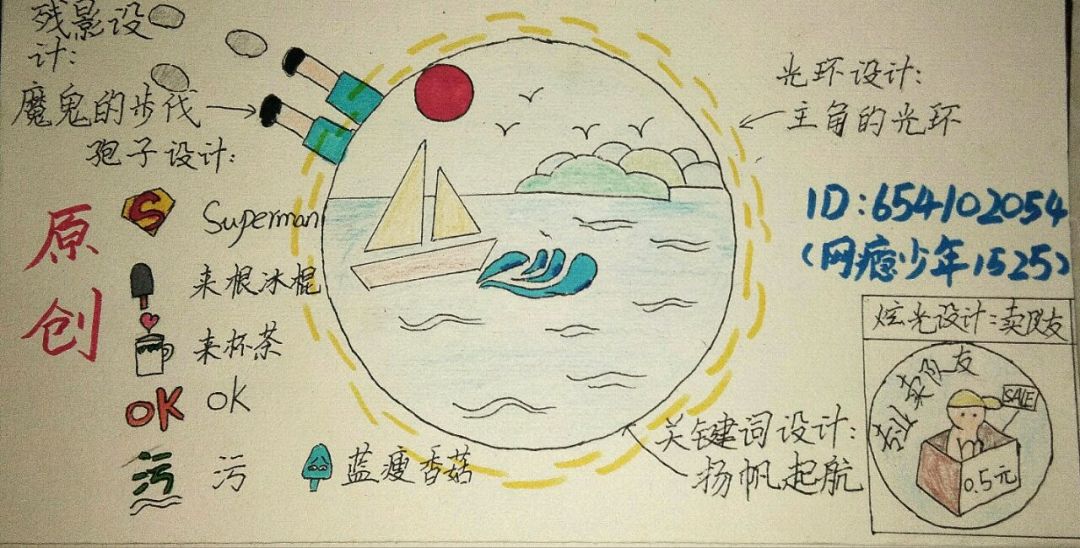 残影设
计:
魔鬼的步伐
孢子设计:
原
创
S
Superman
来根冰棍
来杯茶
OK
OK
污
污
蓝瘦香菇
光环设计:
主角的光环
ID:654102054
(网瘾少年1525)
关键词设计:
扬帆起航
炫光设计:卖队友
专业卖队友
SALE
0.5元